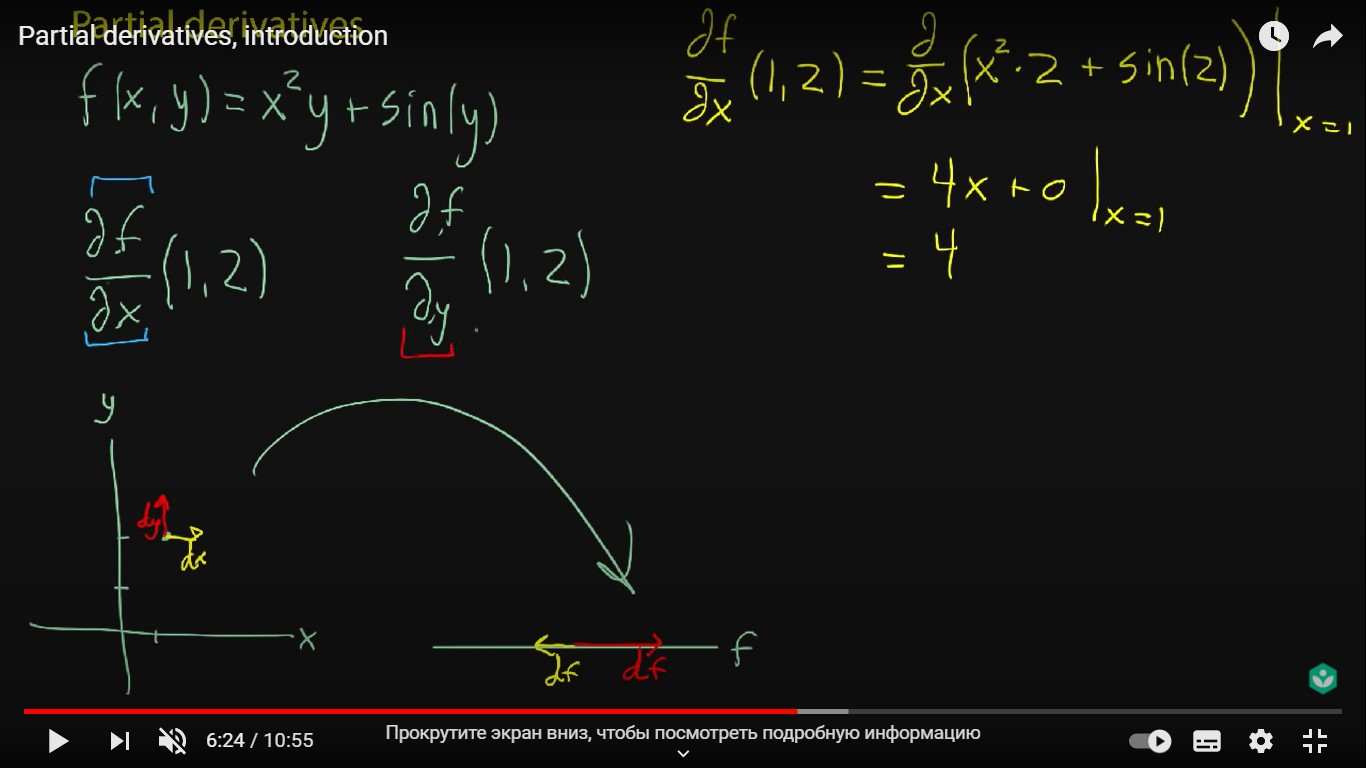 Partial derivatives
Partial derivatives, introduction
f(x, y) = x²y + sin(y)
∂f/∂x (1, 2)
∂f/∂y (1, 2)
∂f/∂x (1, 2) = ∂/∂x (x² · 2 + sin(2)) |x=1
= 4x + 0 |x=1
= 4
y
dy
dx
x
df
df
f
6:24 / 10:55
Прокрутите экран вниз, чтобы посмотреть подробную информацию